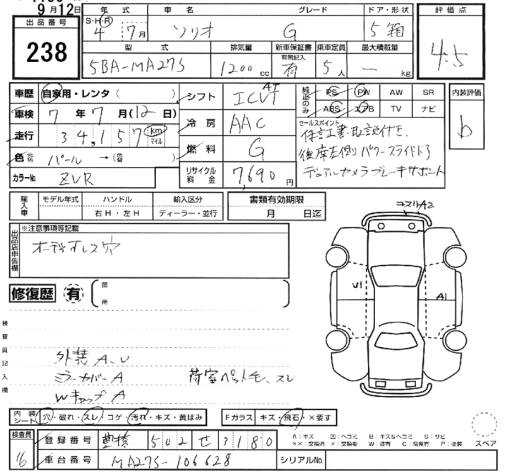 9月12日
出品番号
238
年式 車名 グレード ドア・形状
S・H・R 4年 7月 ソリオ G 5 箱
型式 排気量 新車保証書 乗車定員 最大積載量
有無記入
5BA-MA27S 1200cc 有 5人 — kg
評価点
4.5
車歴 自家用・レンタ( )
車検 7年 7月(12日)
走行 34,157 km マイル
色 パール→( )
カラーNo ZVR
シフト AT ICVT
冷房 AAC
燃料 G
リサイクル料金 7,690円
純正のみ PS PW AW SR
ABS エアB TV ナビ
内装評価
b
セールスポイント
保証書、取説付き、
後席左側パワースライドドア
デュアルカメラブレーキサポート
輸入車 モデル年式 ハンドル 輸入区分
年 右H・左H ディーラー・並行
書類有効期限
月 日迄
出品店申告欄
※注意事項等記載
オーディオレス穴
修復歴 有 箇所
検査員記入欄
外装A、U
ミラーカバーA
WキャップA
荷室ヘリトモ、スレ
コスリA2
U1
A1
内装シート 穴・破れ・スレ コゲ・汚れ・キズ・黄ばみ
Fガラス キズ・飛石・×要す
スペア
検査員
16
登録番号 豊橋 502 せ 7180
車台番号 MA27S-106628
シリアルNo.
A:キズ U:ヘコミ